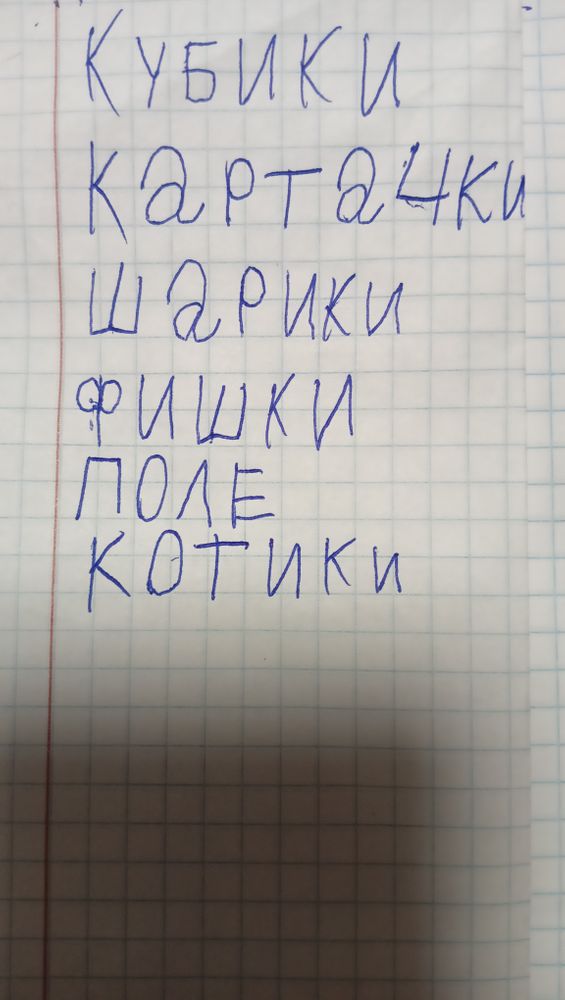 КУБИКИ
КАРТАЧКИ
ШАРИКИ
ФИШКИ
ПОЛЕ
КОТИКИ